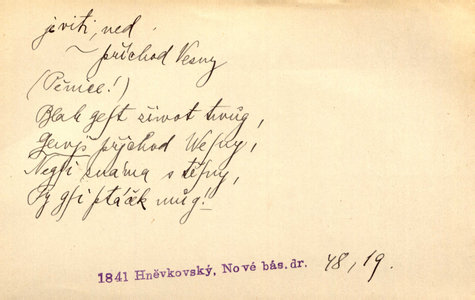 jeviti, ned.
~ příchod Vesny
(Pěnice!)
Blah geſt žiwot twůg,
Gewjš přjchod Weſny,
Negſi známa s těſny,
Ty gſi ptáček můg!
1841 Hněvkovský, Nové bás. dr. 48, 19.